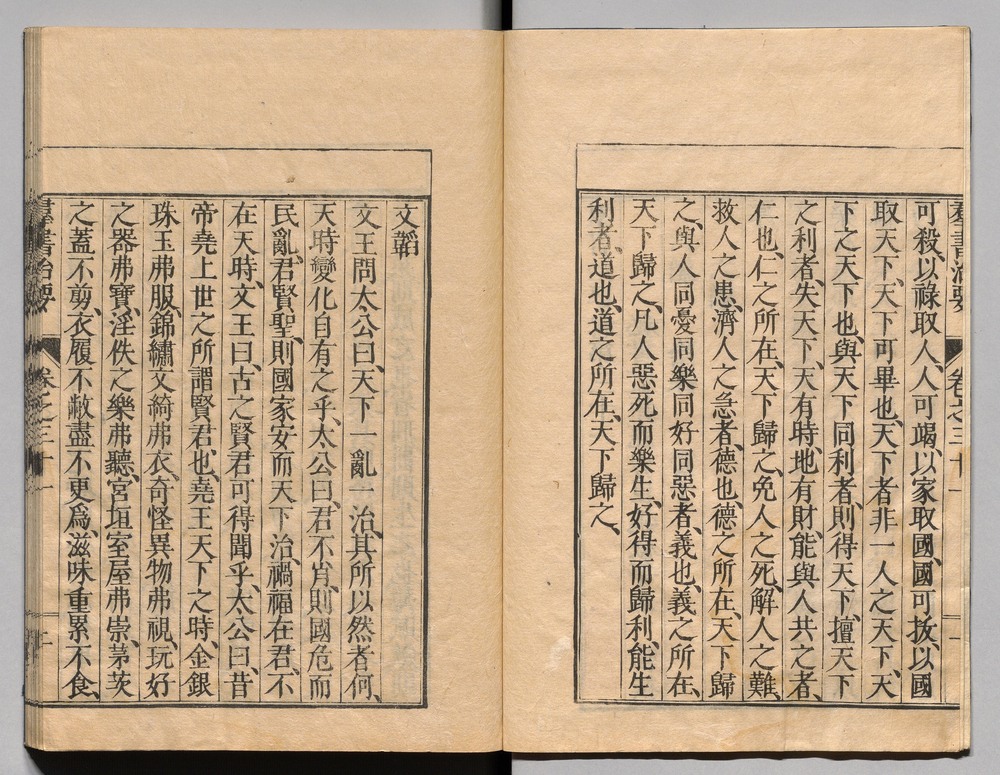 羣書治要 卷之三十一 一
可殺、以祿取人、人可竭、以家取國、國可拔、以國
取天下、天下可畢也、天下者非一人之天下、天
下之天下也、與天下同利者、則得天下、擅天下
之利者、失天下、天有時、地有財、能與人共之者、
仁也、仁之所在、天下歸之、免人之死、解人之難、
救人之患、濟人之急者、德也、德之所在、天下歸
之、與人同憂同樂同好同惡者、義也、義之所在、
天下歸之、凡人惡死而樂生、好得而歸利、能生
利者、道也、道之所在、天下歸之、
文韜
文王問太公曰、天下一亂一治、其所以然者何、
天時變化自有之乎、太公曰、君不肖、則國危而
民亂、君賢聖、則國家安而天下治、禍福在君、不
在天時、文王曰、古之賢君可得聞乎、太公曰、昔
帝堯上世之所謂賢君也、堯王天下之時、金銀
珠玉弗服、錦繡文綺弗衣、奇怪異物弗視、玩好
之器弗寶、淫佚之樂弗聽、宮垣室屋弗崇、茅茨
之蓋不剪、衣履不敝盡不更爲、滋味重累不食、
羣書治要 卷之三十一